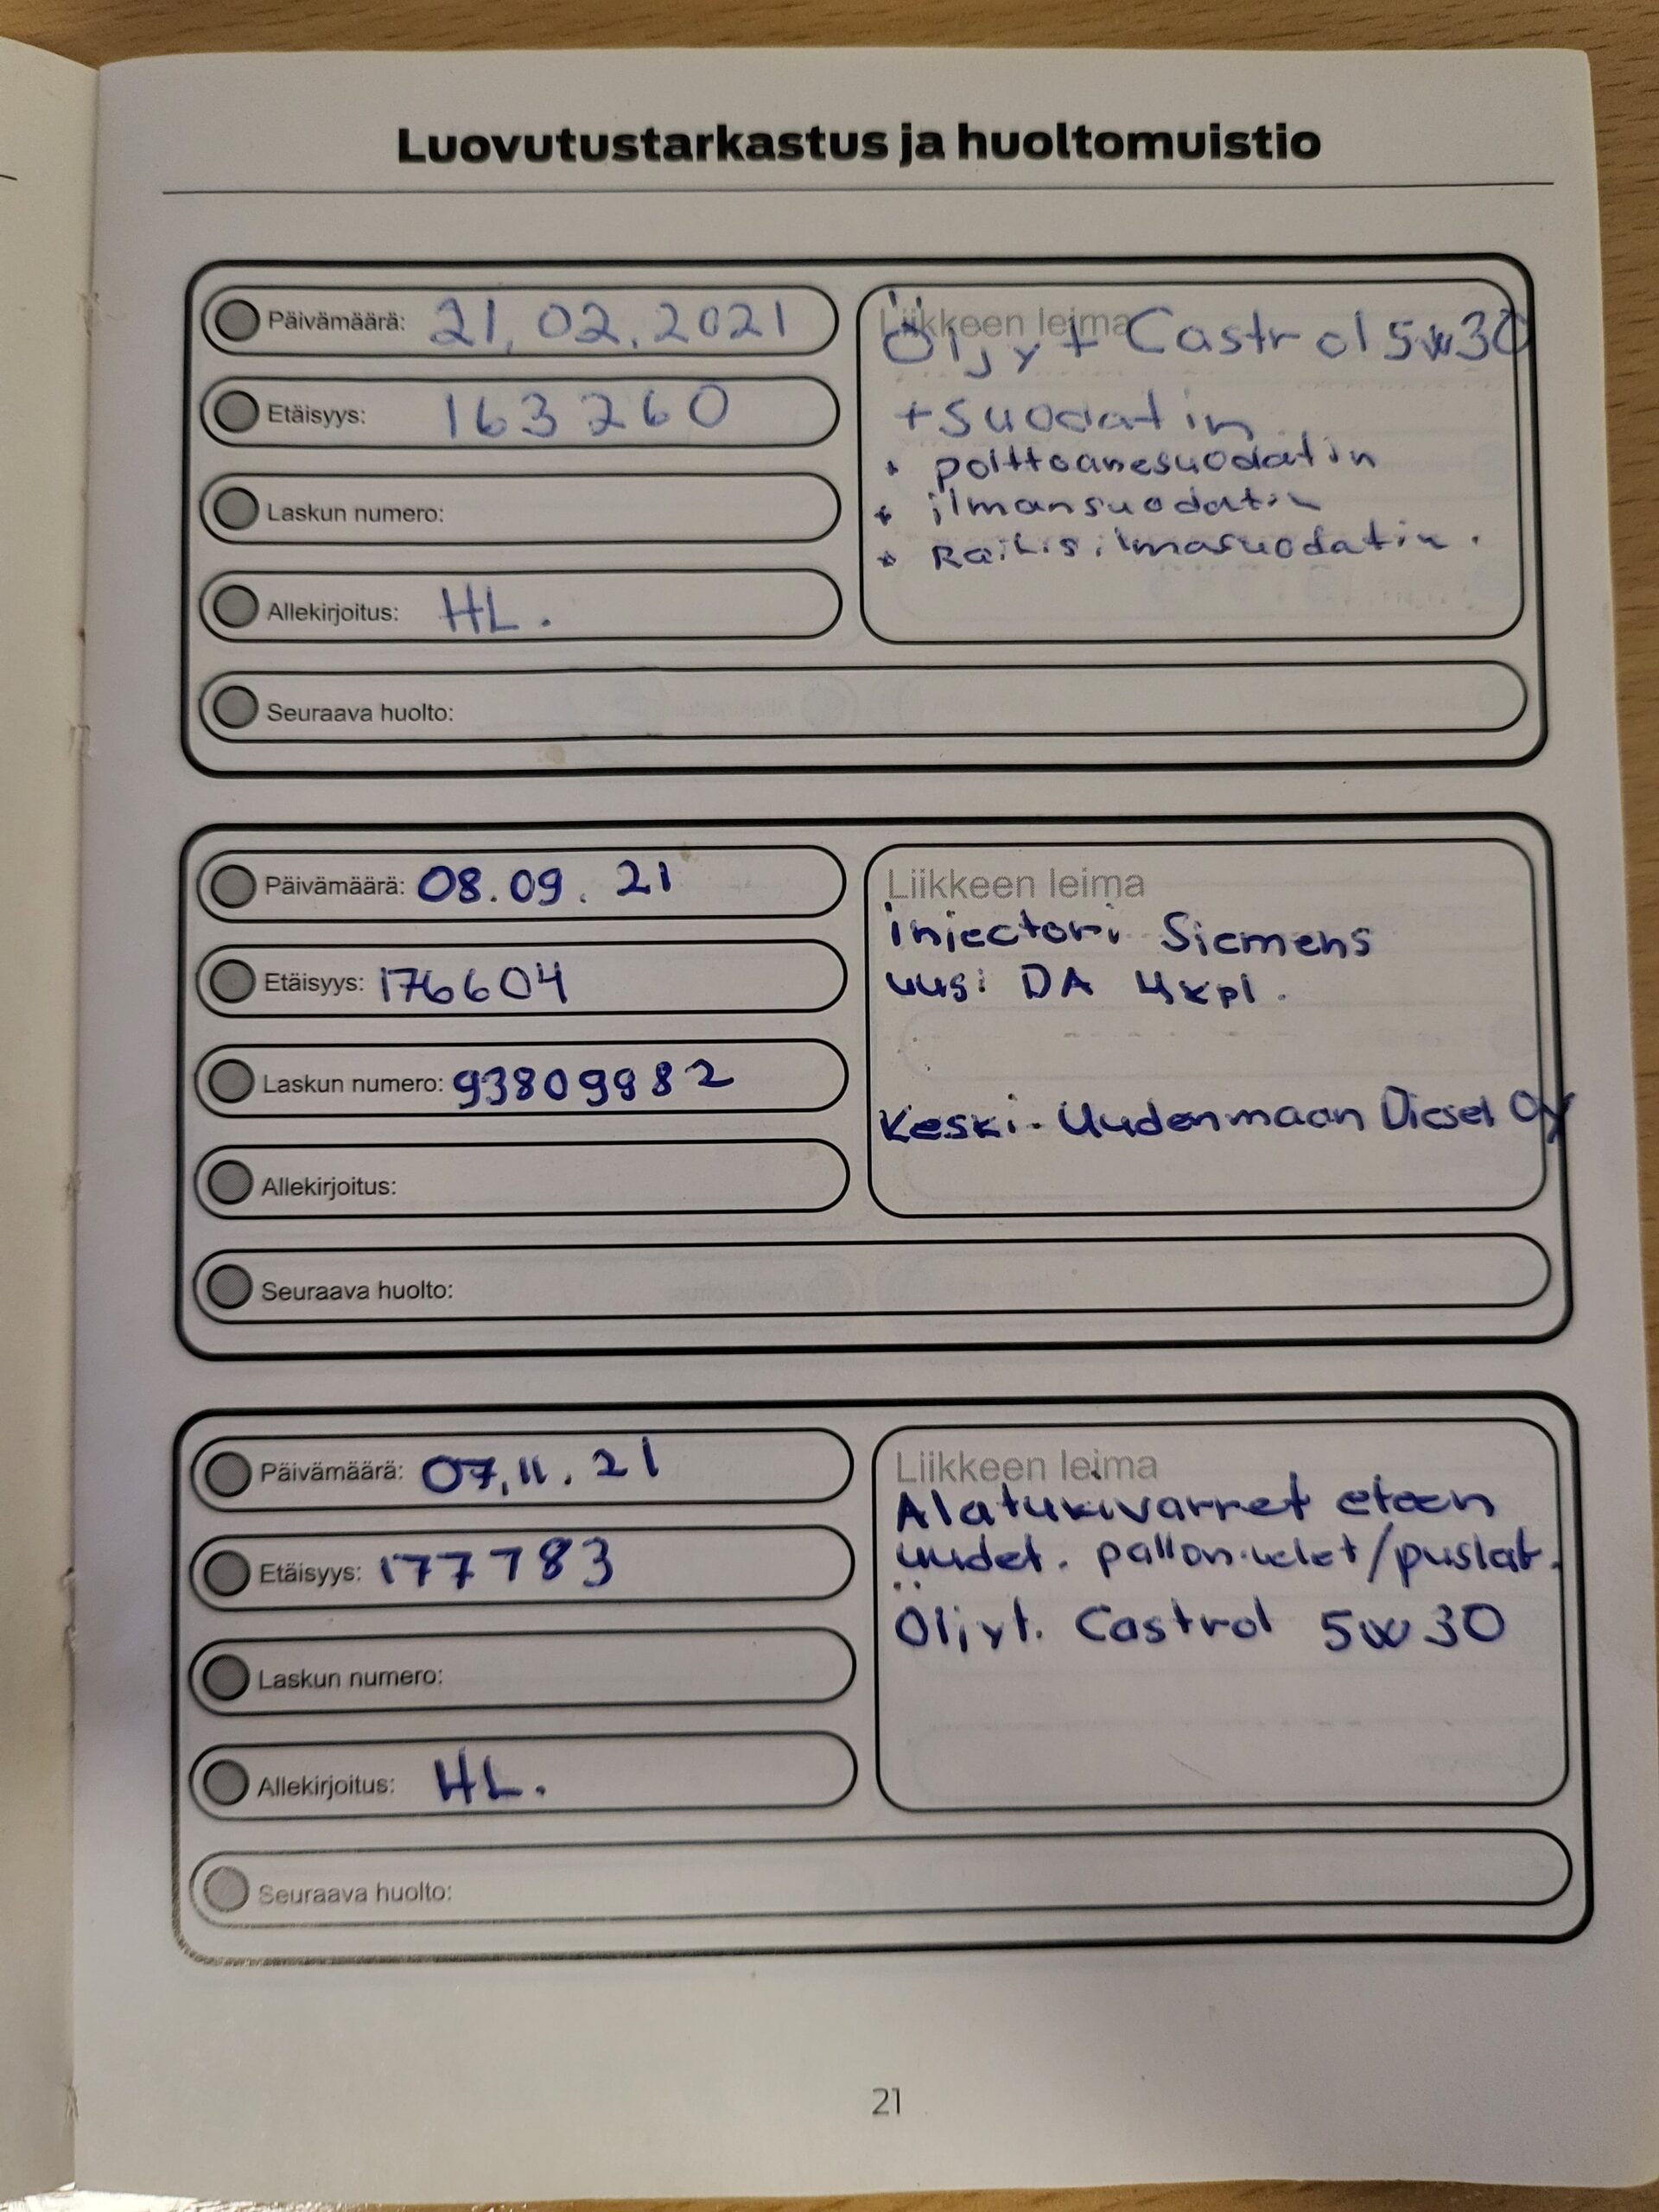 Luovutustarkastus ja huoltomuistio
Päivämäärä: 21.02.2021
Etäisyys: 163260
Laskun numero:
Allekirjoitus: HL.
Seuraava huolto:
Liikkeen leima
Öljyt Castrol 5w30
+ suodatin
+ polttoanesuodatin
+ ilmansuodatin
+ Raitisilmasuodatin.
Päivämäärä: 08.09.21
Etäisyys: 176604
Laskun numero: 93809982
Allekirjoitus:
Seuraava huolto:
Liikkeen leima
injectori Siemens
uusi DA 4kpl.
Keski-Uudenmaan Diesel Oy
Päivämäärä: 07.11.21
Etäisyys: 177783
Laskun numero:
Allekirjoitus: HL.
Seuraava huolto:
Liikkeen leima
Alatukivarret eteen
uudet. pallonivelet/puslat.
Öljyt. Castrol 5w30
21